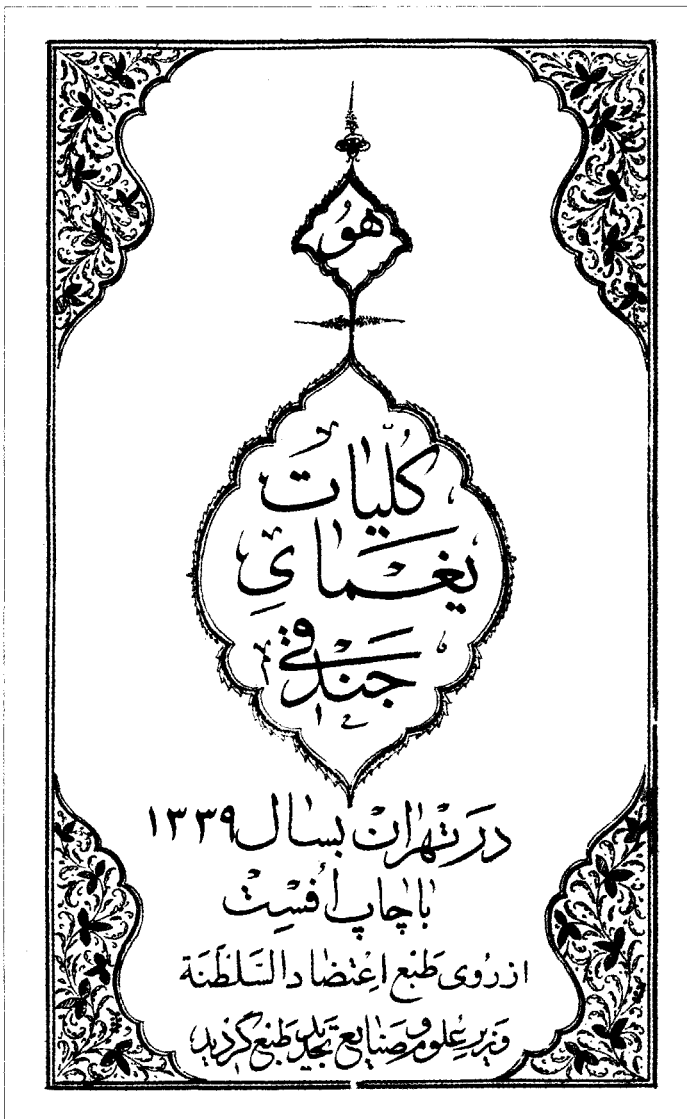 هُو
کُلّیات
یغمایِ
جندقی
در تهران بسال ۱۳۳۹
با چاپ اُفسِت
از روی طَبع اعتضاد السَلطَنَة
وزیر عُلوم و صنایع تجدید طَبع گردید